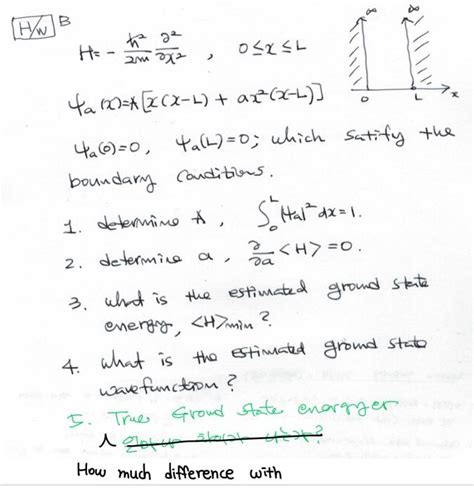 H/W B
H = - ħ²/2m ∂²/∂x² , 0 ≤ x ≤ L
∞ ∞
0 L x
ψa(x) = A [x(x-L) + ax²(x-L)]
ψa(0)=0, ψa(L)=0; which satify the
boundary conditions.
1. determine A, ∫₀ᴸ |ψa|² dx = 1.
2. determine a, ∂/∂a <H> = 0.
3. what is the estimated ground state
energy, <H>min ?
4. what is the estimated ground state
wavefunction ?
5. True Ground state energyger
How much difference with